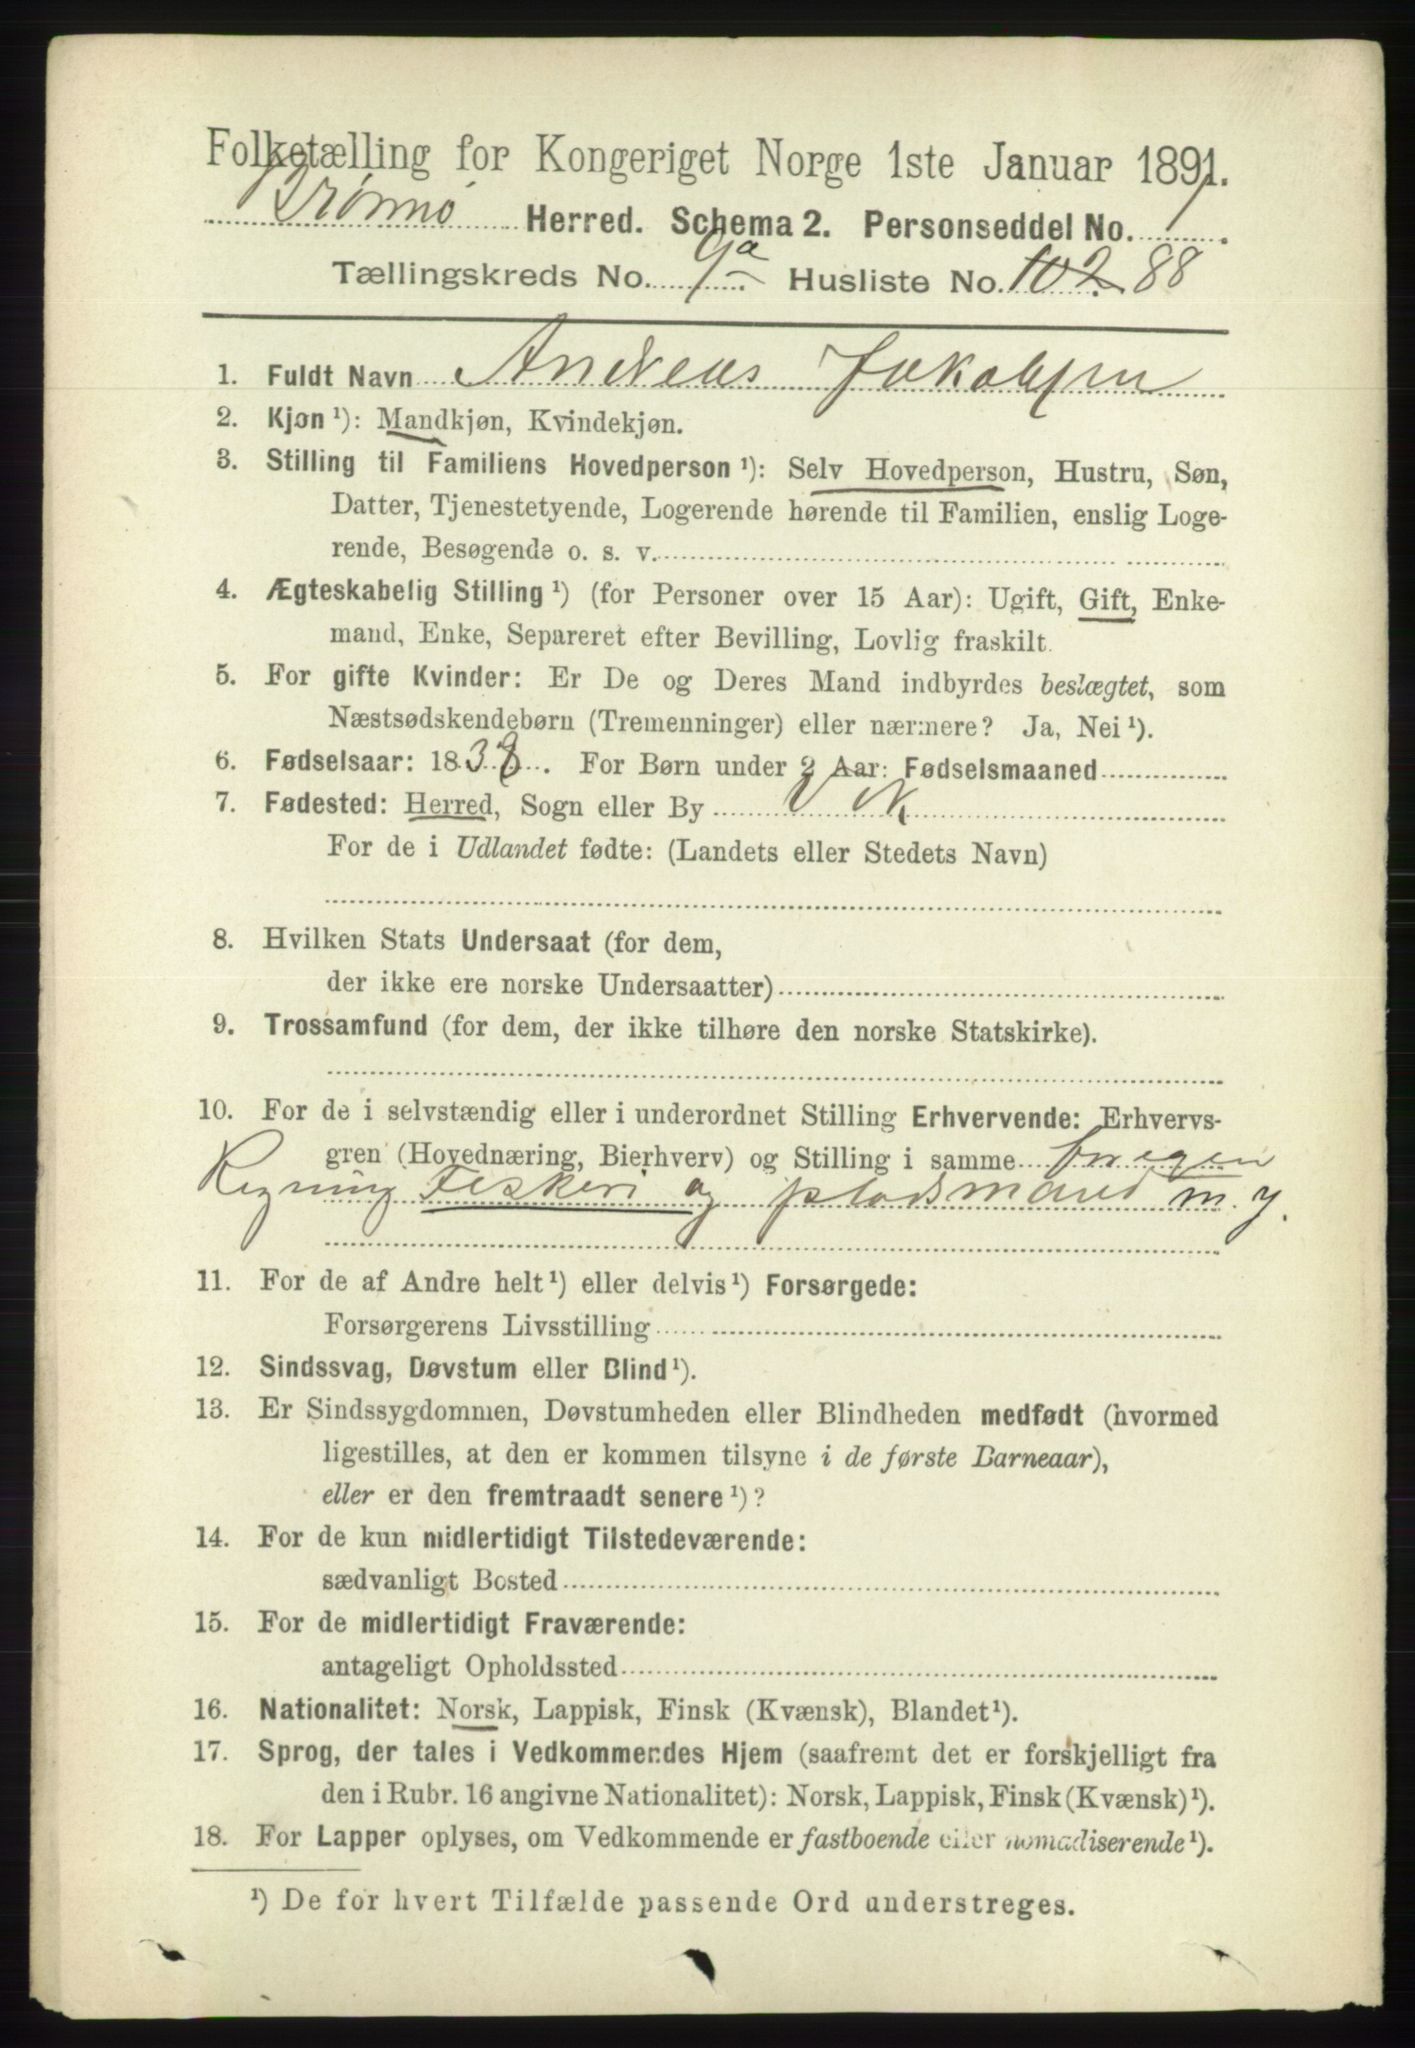 Folketælling for Kongeriget Norge 1ste Januar 1891.
Brønnø Herred. Schema 2. Personseddel No. 1.
Tællingskreds No. 9a. Husliste No. 102. 88
1. Fuldt Navn Andreas Jakobsen
2. Kjøn ¹): Mandkjøn, Kvindekjøn.
3. Stilling til Familiens Hovedperson ¹): Selv Hovedperson, Hustru, Søn,
Datter, Tjenestetyende, Logerende hørende til Familien, enslig Loge-
rende, Besøgende o. s. v.
4. Ægteskabelig Stilling ¹) (for Personer over 15 Aar): Ugift, Gift, Enke-
mand, Enke, Separeret efter Bevilling, Lovlig fraskilt.
5. For gifte Kvinder: Er De og Deres Mand indbyrdes beslægtet, som
Næstsødskendebørn (Tremenninger) eller nærmere? Ja, Nei ¹).
6. Fødselsaar: 1838. For Børn under 2 Aar: Fødselsmaaned
7. Fødested: Herred, Sogn eller By Vik
For de i Udlandet fødte: (Landets eller Stedets Navn)
8. Hvilken Stats Undersaat (for dem,
der ikke ere norske Undersaatter)
9. Trossamfund (for dem, der ikke tilhøre den norske Statskirke).
10. For de i selvstændig eller i underordnet Stilling Erhvervende: Erhvervs-
gren (Hovednæring, Bierhverv) og Stilling i samme
Regning Fiskeri og pladsmand m. j.
11. For de af Andre helt ¹) eller delvis ¹) Forsørgede:
Forsørgerens Livsstilling
12. Sindssvag, Døvstum eller Blind ¹).
13. Er Sindssygdommen, Døvstumheden eller Blindheden medfødt (hvormed
ligestilles, at den er kommen tilsyne i de første Barneaar),
eller er den fremtraadt senere ¹)?
14. For de kun midlertidigt Tilstedeværende:
sædvanligt Bosted
15. For de midlertidigt Fraværende:
antageligt Opholdssted
16. Nationalitet: Norsk, Lappisk, Finsk (Kvænsk), Blandet ¹).
17. Sprog, der tales i Vedkommendes Hjem (saafremt det er forskjelligt fra
den i Rubr. 16 angivne Nationalitet): Norsk, Lappisk, Finsk (Kvænsk) ¹).
18. For Lapper oplyses, om Vedkommende er fastboende eller nomadiserende ¹).
¹) De for hvert Tilfælde passende Ord understreges.